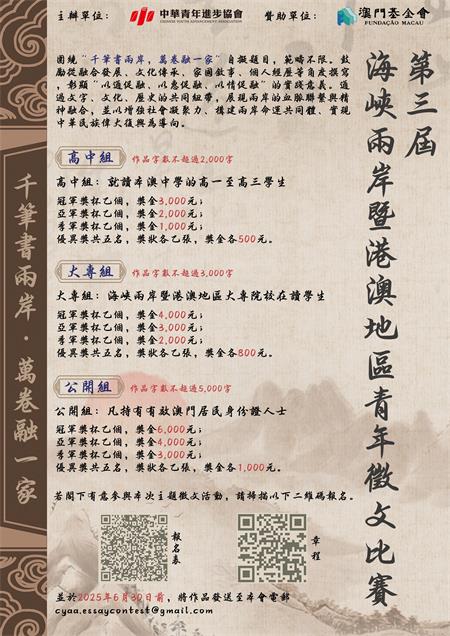 主辦單位：
中華青年進步協會
CHINESE YOUTH ADVANCEMENT ASSOCIATION
贊助單位：
澳門基金會
FUNDAÇÃO MACAU
第三屆
海峽兩岸暨港澳地區青年徵文比賽
千筆書兩岸·萬卷融一家
圍繞“千筆書兩岸，萬卷融一家”自擬題目，範疇不限。鼓
勵從融合發展、文化傳承、家國敘事、個人經歷等角度撰寫
，彰顯“以通促融、以惠促融、以情促融”的實踐意義。通
過文字、文化、歷史的共同紐帶，展現兩岸的血脈聯繫與精
神融合，並以增強社會凝聚力、構建兩岸命運共同體、實現
中華民族偉大復興為導向。
高中組
作品字數不超過2,000字
高中組：就讀本澳中學的高一至高三學生
冠軍獎杯乙個，獎金3,000元；
亞軍獎杯乙個，獎金2,000元；
季軍獎杯乙個，獎金1,000元；
優異獎共五名，獎狀各乙張，獎金各500元。
大專組
作品字數不超過3,000字
大專組：海峽兩岸暨港澳地區大專院校在讀學生
冠軍獎杯乙個，獎金4,000元；
亞軍獎杯乙個，獎金3,000元；
季軍獎杯乙個，獎金2,000元；
優異獎共五名，獎狀各乙張，獎金各800元。
公開組
作品字數不超過5,000字
公開組：凡持有有效澳門居民身份證人士
冠軍獎杯乙個，獎金6,000元；
亞軍獎杯乙個，獎金4,000元；
季軍獎杯乙個，獎金3,000元；
優異獎共五名，獎狀各乙張，獎金各1,000元。
若閣下有意參與本次主題徵文活動，請掃描以下二維碼報名。
報名表
章程
並於2025年6月30日前，將作品發送至本會電郵
cyaa.essaycontest@gmail.com